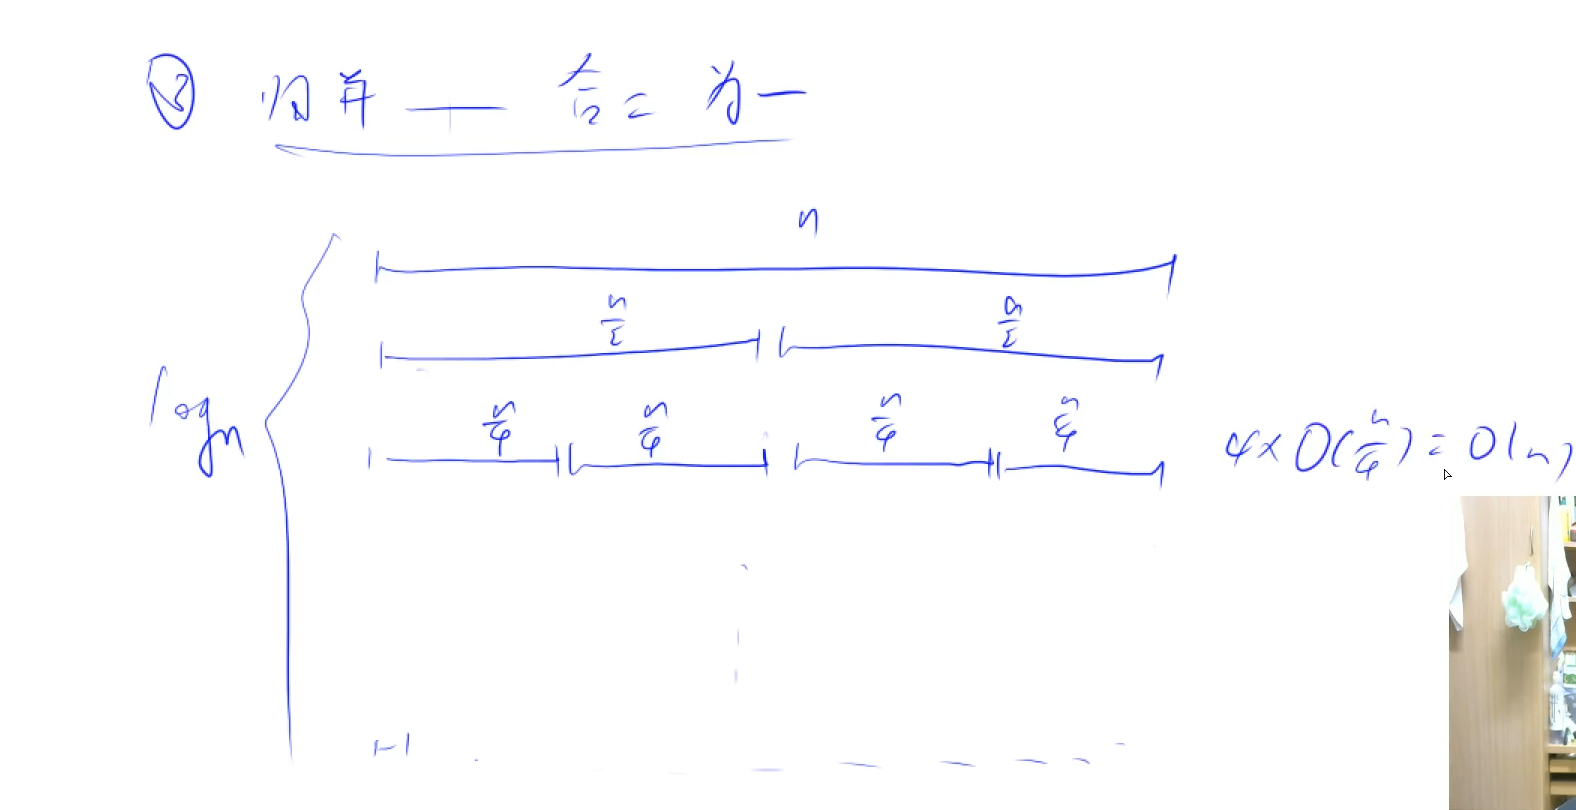 ③ 归并 — 合二为一
n
n/2 n/2
n/4 n/4 n/4 n/4 4×O(n/4)=O(n)
logn